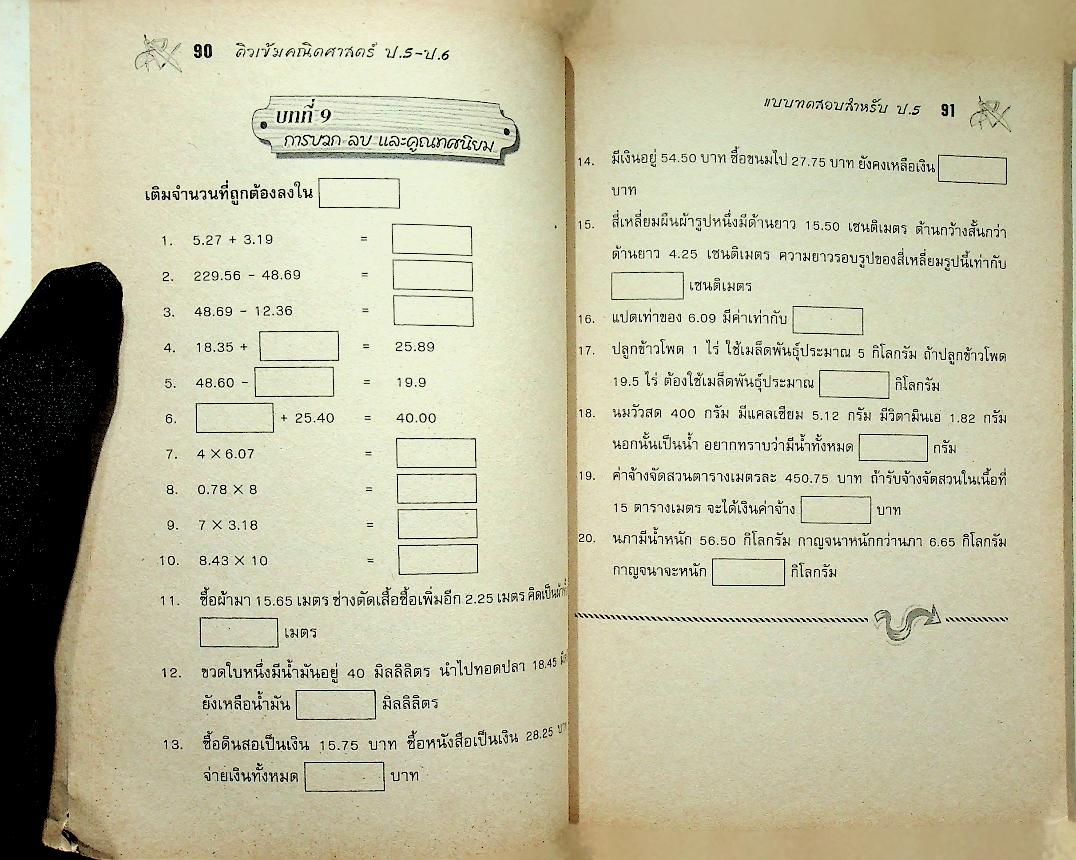 90 ติวเข้มคณิตศาสตร์ ป.5-ป.6
บทที่ 9
การบวก ลบ และคูณทศนิยม
เติมจำนวนที่ถูกต้องลงใน
1. 5.27 + 3.19 =
2. 229.56 - 48.69 =
3. 48.69 - 12.36 =
4. 18.35 + = 25.89
5. 48.60 - = 19.9
6. + 25.40 = 40.00
7. 4 × 6.07 =
8. 0.78 × 8 =
9. 7 × 3.18 =
10. 8.43 × 10 =
11. ซื้อผ้ามา 15.65 เมตร ช่างตัดเสื้อซื้อเพิ่มอีก 2.25 เมตร คิดเป็น
เมตร
12. ขวดใบหนึ่งมีน้ำมันอยู่ 40 มิลลิลิตร นำไปทอดปลา 18.45
ยังเหลือน้ำมัน มิลลิลิตร
13. ซื้อดินสอเป็นเงิน 15.75 บาท ซื้อหนังสือเป็นเงิน 28.25
จ่ายเงินทั้งหมด บาท
แบบทดสอบสำหรับ ป.5 91
14. มีเงินอยู่ 54.50 บาท ซื้อขนมไป 27.75 บาท ยังคงเหลือเงิน
บาท
15. สี่เหลี่ยมผืนผ้ารูปหนึ่งมีด้านยาว 15.50 เซนติเมตร ด้านกว้างสั้นกว่า
ด้านยาว 4.25 เซนติเมตร ความยาวรอบรูปของสี่เหลี่ยมรูปนี้เท่ากับ
เซนติเมตร
16. แปดเท่าของ 6.09 มีค่าเท่ากับ
17. ปลูกข้าวโพด 1 ไร่ ใช้เมล็ดพันธุ์ประมาณ 5 กิโลกรัม ถ้าปลูกข้าวโพด
19.5 ไร่ ต้องใช้เมล็ดพันธุ์ประมาณ กิโลกรัม
18. นมวัวสด 400 กรัม มีแคลเซียม 5.12 กรัม มีวิตามินเอ 1.82 กรัม
นอกนั้นเป็นน้ำ อยากทราบว่ามีน้ำทั้งหมด กรัม
19. ค่าจ้างจัดสวนตารางเมตรละ 450.75 บาท ถ้ารับจ้างจัดสวนในเนื้อที่
15 ตารางเมตร จะได้เงินค่าจ้าง บาท
20. นภามีน้ำหนัก 56.50 กิโลกรัม กาญจนาหนักกว่านภา 6.65 กิโลกรัม
กาญจนาจะหนัก กิโลกรัม